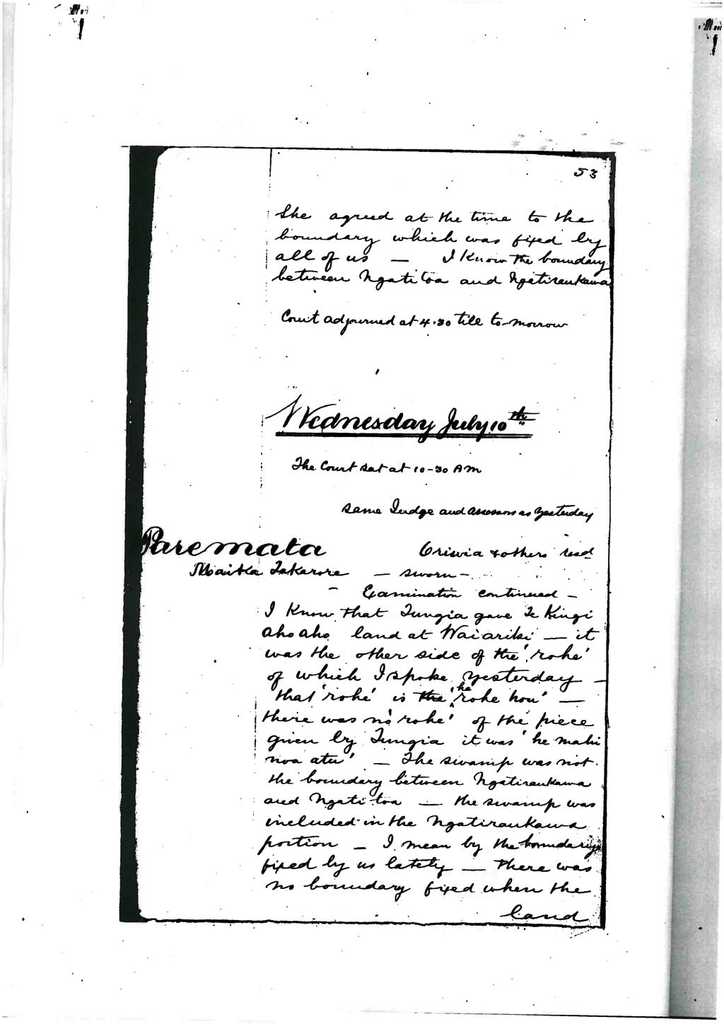 53
She agreed at the time to the
boundary which was fixed by
all of us — I know the boundary
between Ngatitoa and Ngatiraukawa
Court adjourned at 4.30 till to-morrow
Wednesday July 10th
The Court sat at 10-30 AM
Same Judge and assessors as yesterday
Paremata
& others
— sworn —
— Examination continued —
I know that Tungia gave Te Kingi
aho aho land at Waiariki — it
was the other side of the 'rohe'
of which I spoke yesterday —
that 'rohe' is the 'he rohe hou' —
there was no 'rohe' of the piece
given by Tungia it was 'he mahi
noa atu' — The swamp was not
the boundary between Ngatiraukawa
and Ngati toa — the swamp was
included in the Ngatiraukawa
portion — I mean by the boundary
fixed by us lately — there was
no boundary fixed when the
land